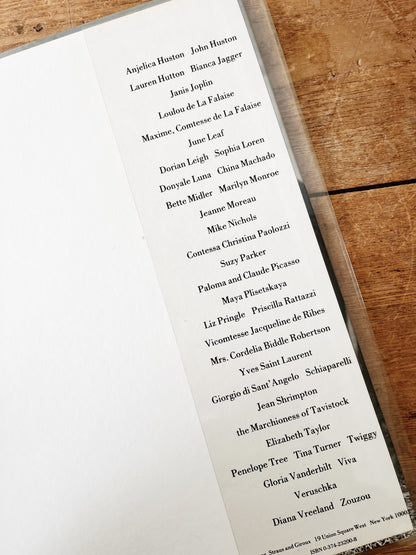 Anjelica Huston John Huston
Lauren Hutton Bianca Jagger
Janis Joplin
Loulou de La Falaise
Maxime, Comtesse de La Falaise
June Leaf
Dorian Leigh Sophia Loren
Donyale Luna China Machado
Bette Midler Marilyn Monroe
Jeanne Moreau
Mike Nichols
Contessa Christina Paolozzi
Suzy Parker
Paloma and Claude Picasso
Maya Plisetskaya
Liz Pringle Priscilla Rattazzi
Vicomtesse Jacqueline de Ribes
Mrs. Cordelia Biddle Robertson
Yves Saint Laurent
Giorgio di Sant'Angelo Schiaparelli
Jean Shrimpton
the Marchioness of Tavistock
Elizabeth Taylor
Penelope Tree Tina Turner Twiggy
Gloria Vanderbilt Viva
Veruschka
Diana Vreeland Zouzou
Straus and Giroux 19 Union Square West New York 1000
ISBN 0-374-23200-8